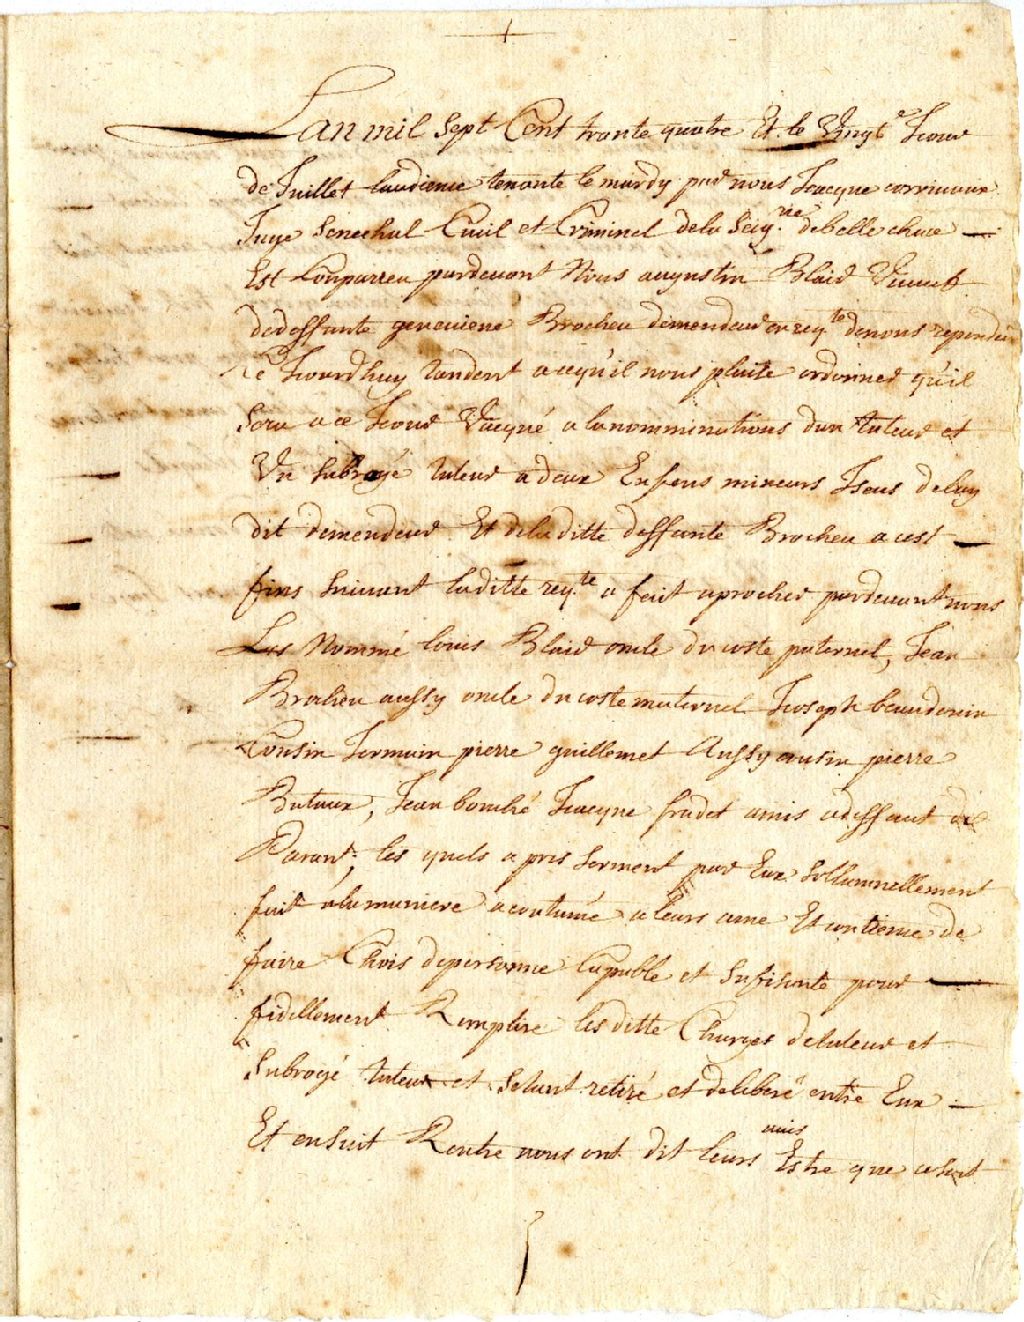 Lan mil sept Cent trante quatre Et le Vingt.e Jour
de Juillet laudience tenante le mardy par nous Jacque corriveaux
Juge Senechal Civil et Criminel dela Seig.rie debellechase
Est Comparreu pardevant Nous augustin Blaid Veuuf
dedeffante genevieve Brocheu demendeur en reqte denous repondeu
Le Jourdhuy tandent acequ'il nous plaise ordonner qu'il
Sera a ce Jour Vacqué a lanomminations dun tuteur et
Un Subrogé tuteur a deux Enfens mineurs Iseus deluy
dit demendeur Et deladitte deffante Brocheu a cest
fins Suivant laditte req.te a fait aprocher pardevant nous
Les Nommé louis Blaid oncle du coste paternel, Jean
Brocheu aussy oncle du coste maternel Joseph beaudouin
Cousin Jermain pierre guillemet Aussy cousin pierre
Butaux, Jean bonché Jacque fradet amis adeffaut de
Parant, les quels a pris Serment par Eux Sollamnellement
fait alamaniere acoutumé a leurs ame Et contience de
faire Chois depersonne Capable et Sufisente pour
fidellement Remplire lesditte Charges detuteur et
Subrogé tuteur et Setant retiré et deliberé entre Eux
Et ensuit Rentre nous ont dit leurs avis Estre que ce soit